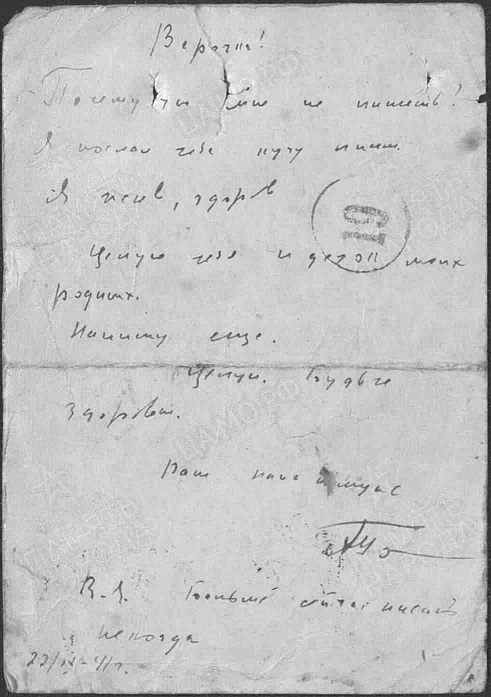 Верочка!
Почему ты мне не пишешь!
Я послал тебе кучу писем.
Я жив, здоров
Целую тебя и детей моих
родных.
Напишу еще.
Целую. Будьте
здоровы.
Ваш папа и муж
10
В. Я. Больше сейчас писать
некогда
22/IX-41г.